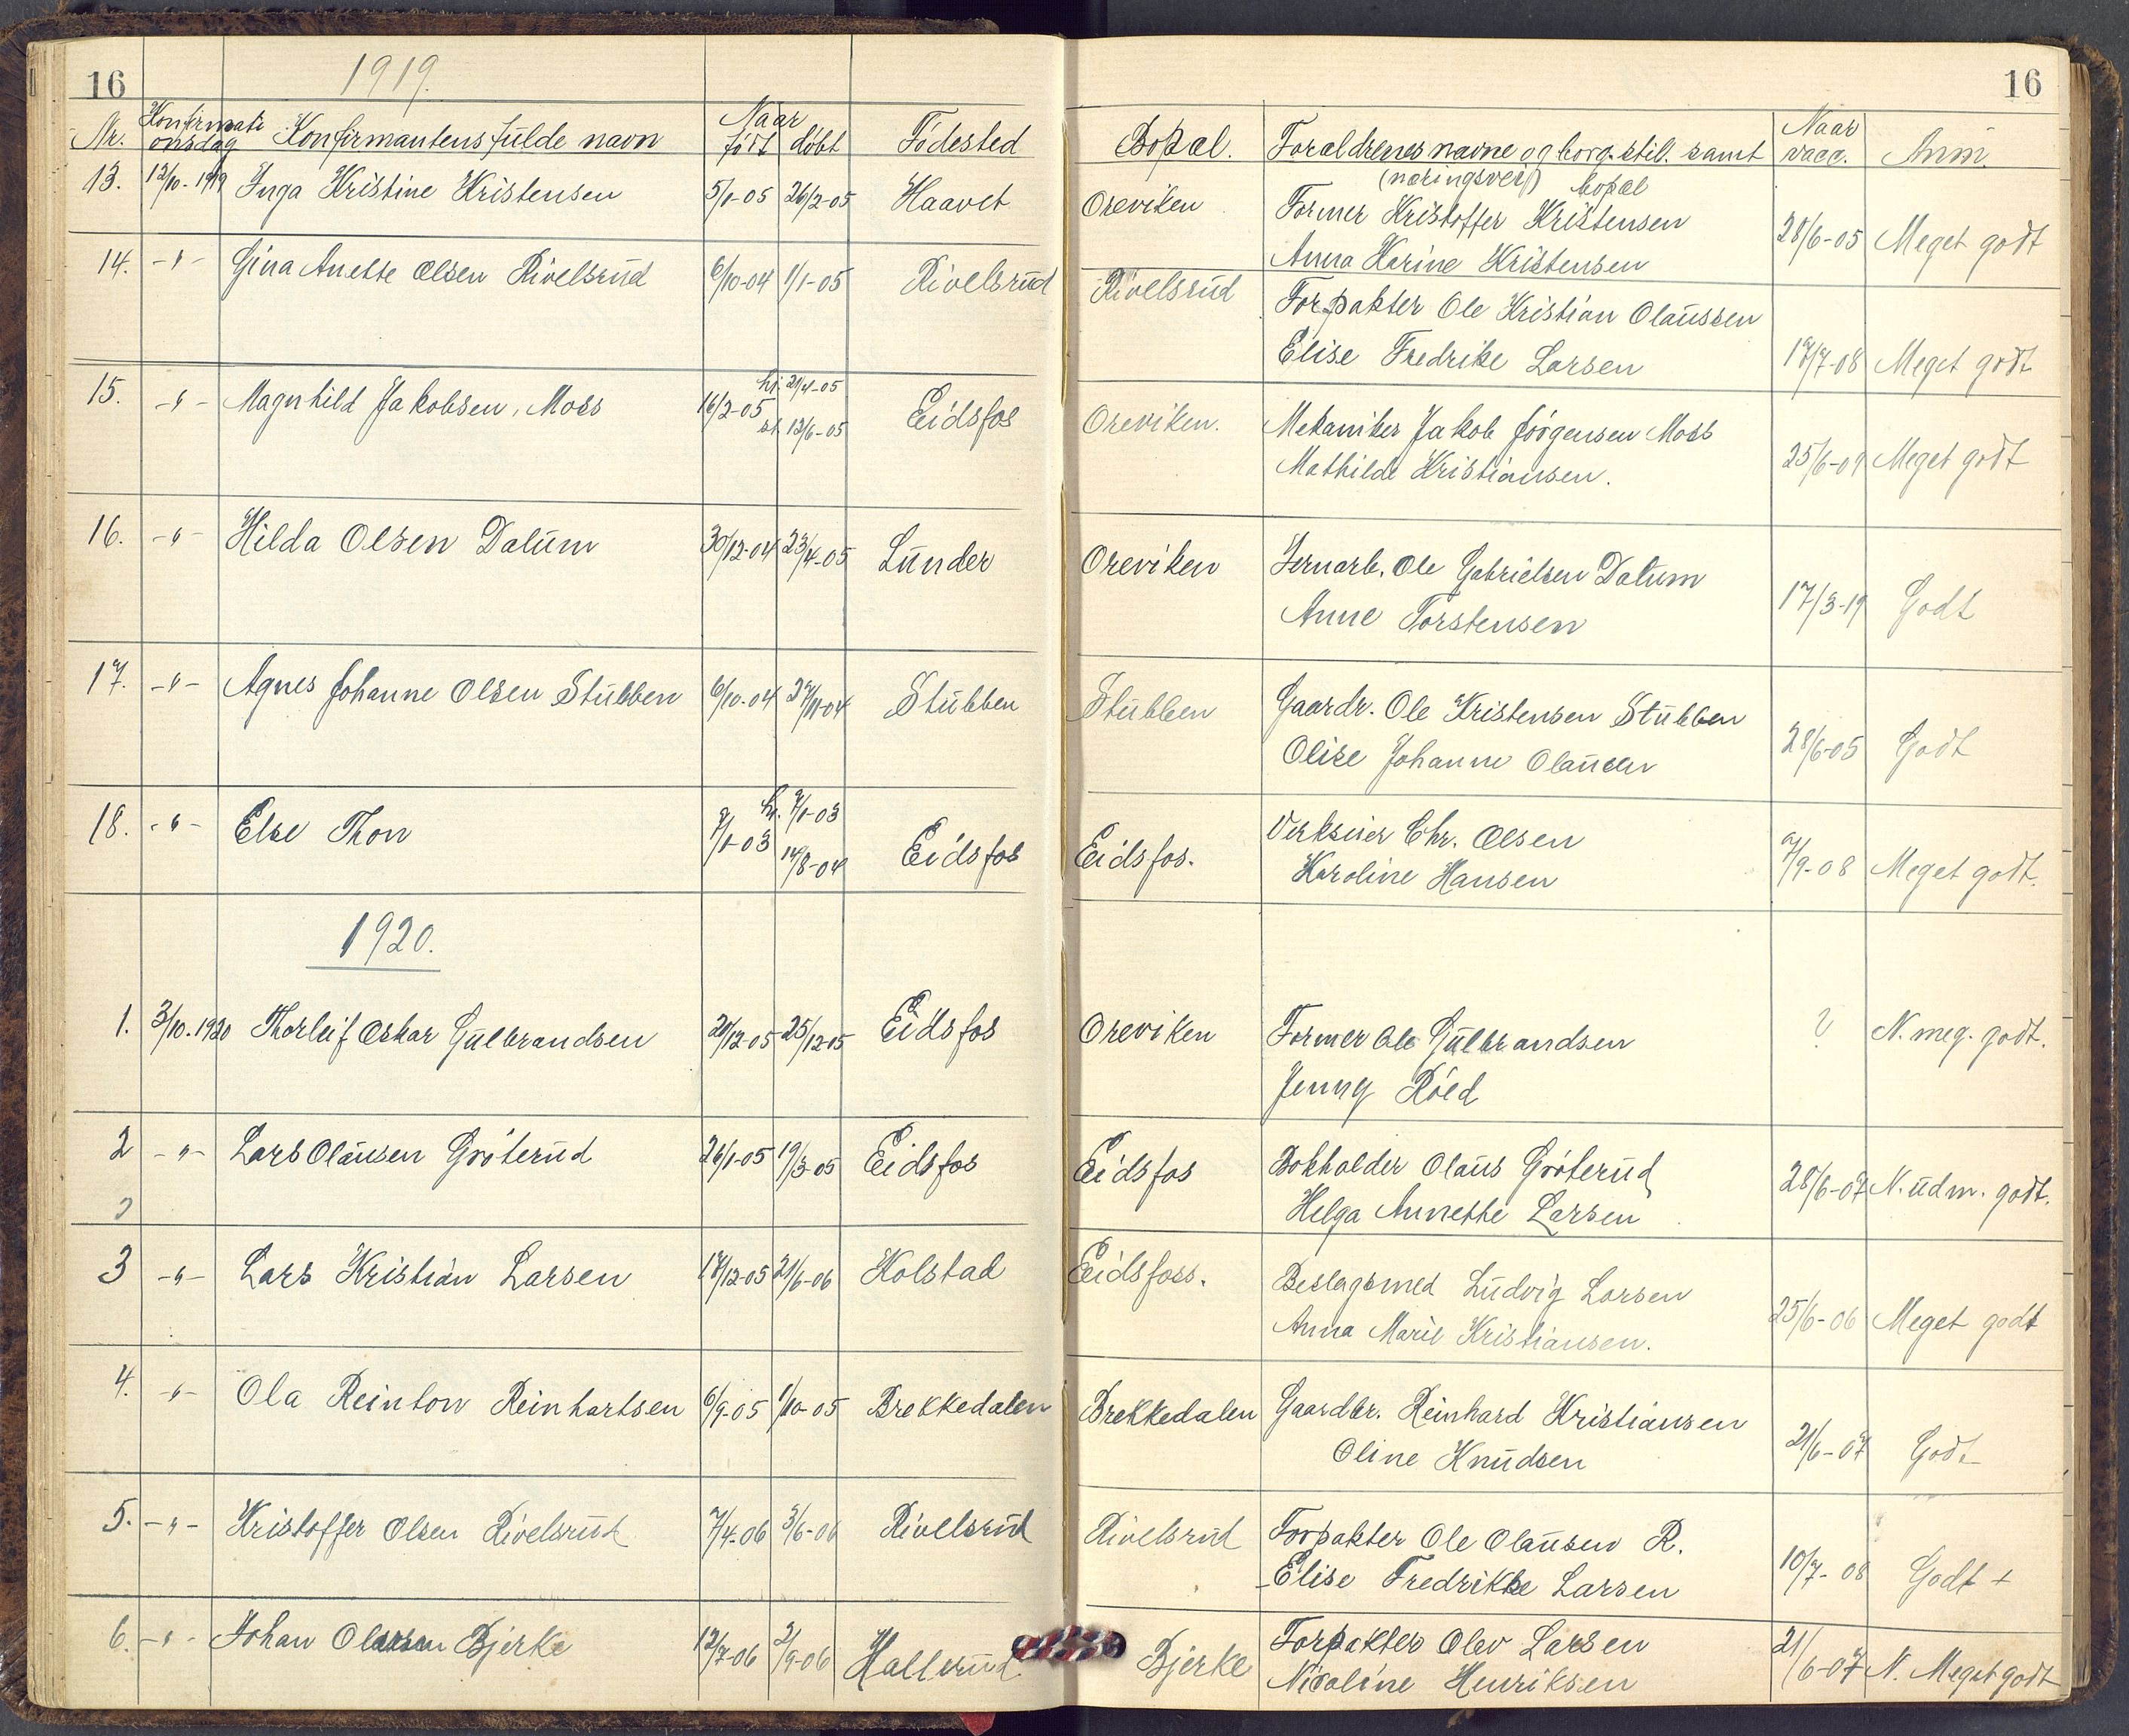 16
1919.
Nr. Konfirmati onsdag Konfirmantens fulde navn Naar födt döbt Födested
13. 12/10-1919 Inga Kristine Kristensen 5/1-05 26/2-05 Haavet
14. -"- Gina Anette Olsen Rivelsrud 6/10-04 1/1-05 Rivelsrud
15. -"- Magnhild Jakobsen, Moss 16/2-05 hj. 21/4-05 st. 12/6-05 Eidsfos
16. -"- Hilda Olsen Dalum 30/12-04 23/4-05 Lunder
17. -"- Agnes Johanne Olsen Stubben 6/10-04 27/11-04 Stubben
18. -"- Else Thon 9/1-03 hj. 9/1-03 14/8-04 Eidsfos
1920.
1. 3/10.1920 Thorleif Oskar Gulbrandsen 21/12-05 25/12-05 Eidsfos
2 -"- Lars Olausen Gröterud 26/1-05 19/3-05 Eidsfos
3 -"- Lars Kristian Larsen 17/12-05 21/6-06 Kolstad
4. -"- Ola Reinton Reinhartsen 6/9-05 1/10-05 Brekkedalen
5. -"- Kristoffer Olsen Rivelsrud 7/4-06 3/6-06 Rivelsrud
6. -"- Johan Olsen Bjerke 12/7-06 2/9-06 Hallerud
16
Bopæl. Foraldrenes navne og borg. stil. samt Naar vacc. Anm.
(næringsvei) bopæl
Oreviken Former Kristoffer Kristensen
Anna Karine Kristensen 28/6-05 Meget godt
Rivelsrud Forpakter Ole Kristian Olaussen
Elise Fredrike Larsen 17/7-08 Meget godt
Oreviken. Mekaniker Jakob Jörgensen Moss
Mathilde Kristiansen. 25/6-09 Meget godt
Oreviken Jernarb. Ole Gabrielsen Dalum
Anne Torstensen 17/3-19 Godt
Stubben Gaardr. Ole Kristensen Stubben
Olise Johanne Olausen 28/6-05 Godt
Eidsfos. Verkseier Chr. Olsen
Karoline Hansen 9/9-08 Meget godt.
Oreviken Former Ole Gulbrandsen ? N. meg. godt.
Jenny Röed
Eidsfos Bokholder Olaus Gröterud
Helga Annethe Larsen 28/6-07 N. udm. godt.
Eidsfoss. Beslagsmed Ludvig Larsen
Anna Marie Kristiansen. 25/6-06 Meget godt
Brekkedalen Gaardbr. Reinhard Kristiansen
Oline Knudsen 21/6-07 Godt
Rivelsrud Forpakter Ole Olausen R.
Elise Fredrikke Larsen 10/7-08 Godt +
Bjerke Forpakter Olev Larsen
Nicoline Henriksen 21/6-07 N. Meget godt